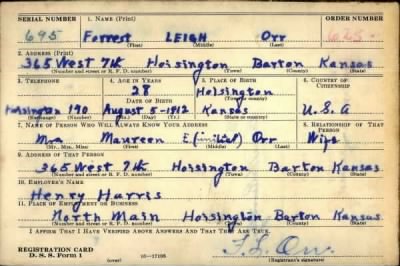 SERIAL NUMBER 1. NAME (Print) ORDER NUMBER
695 Forrest LEIGH Orr
(First) (Middle) (Last)
2. ADDRESS (Print)
365 West 7th Hoisington Barton Kansas
(Number and street or R. F. D. number) (Town) (County) (State)
3. TELEPHONE 4. AGE IN YEARS 5. PLACE OF BIRTH 6. COUNTRY OF CITIZENSHIP
28 Hoisington
DATE OF BIRTH (Town or county)
Hoisington 190 August 5-1912 Kansas U.S.A
(Exchange) (Number) (Mo.) (Day) (Yr.) (State or country)
7. NAME OF PERSON WHO WILL ALWAYS KNOW YOUR ADDRESS 8. RELATIONSHIP OF THAT PERSON
Maureen E (initial) Orr Wife
(Mr., Mrs., Miss) (First) (Middle) (Last)
9. ADDRESS OF THAT PERSON
365 West 7th Hoisington Barton Kansas
(Number and street or R. F. D. number) (Town) (County) (State)
10. EMPLOYER'S NAME
Henry Harris
11. PLACE OF EMPLOYMENT OR BUSINESS
North Main Hoisington Barton Kansas
(Number and street or R. F. D. number) (Town) (County) (State)
I AFFIRM THAT I HAVE VERIFIED ABOVE ANSWERS AND THAT THEY ARE TRUE.
REGISTRATION CARD F.L. Orr
D. S. S. Form 1 (over) 16-17105 (Registrant's signature)